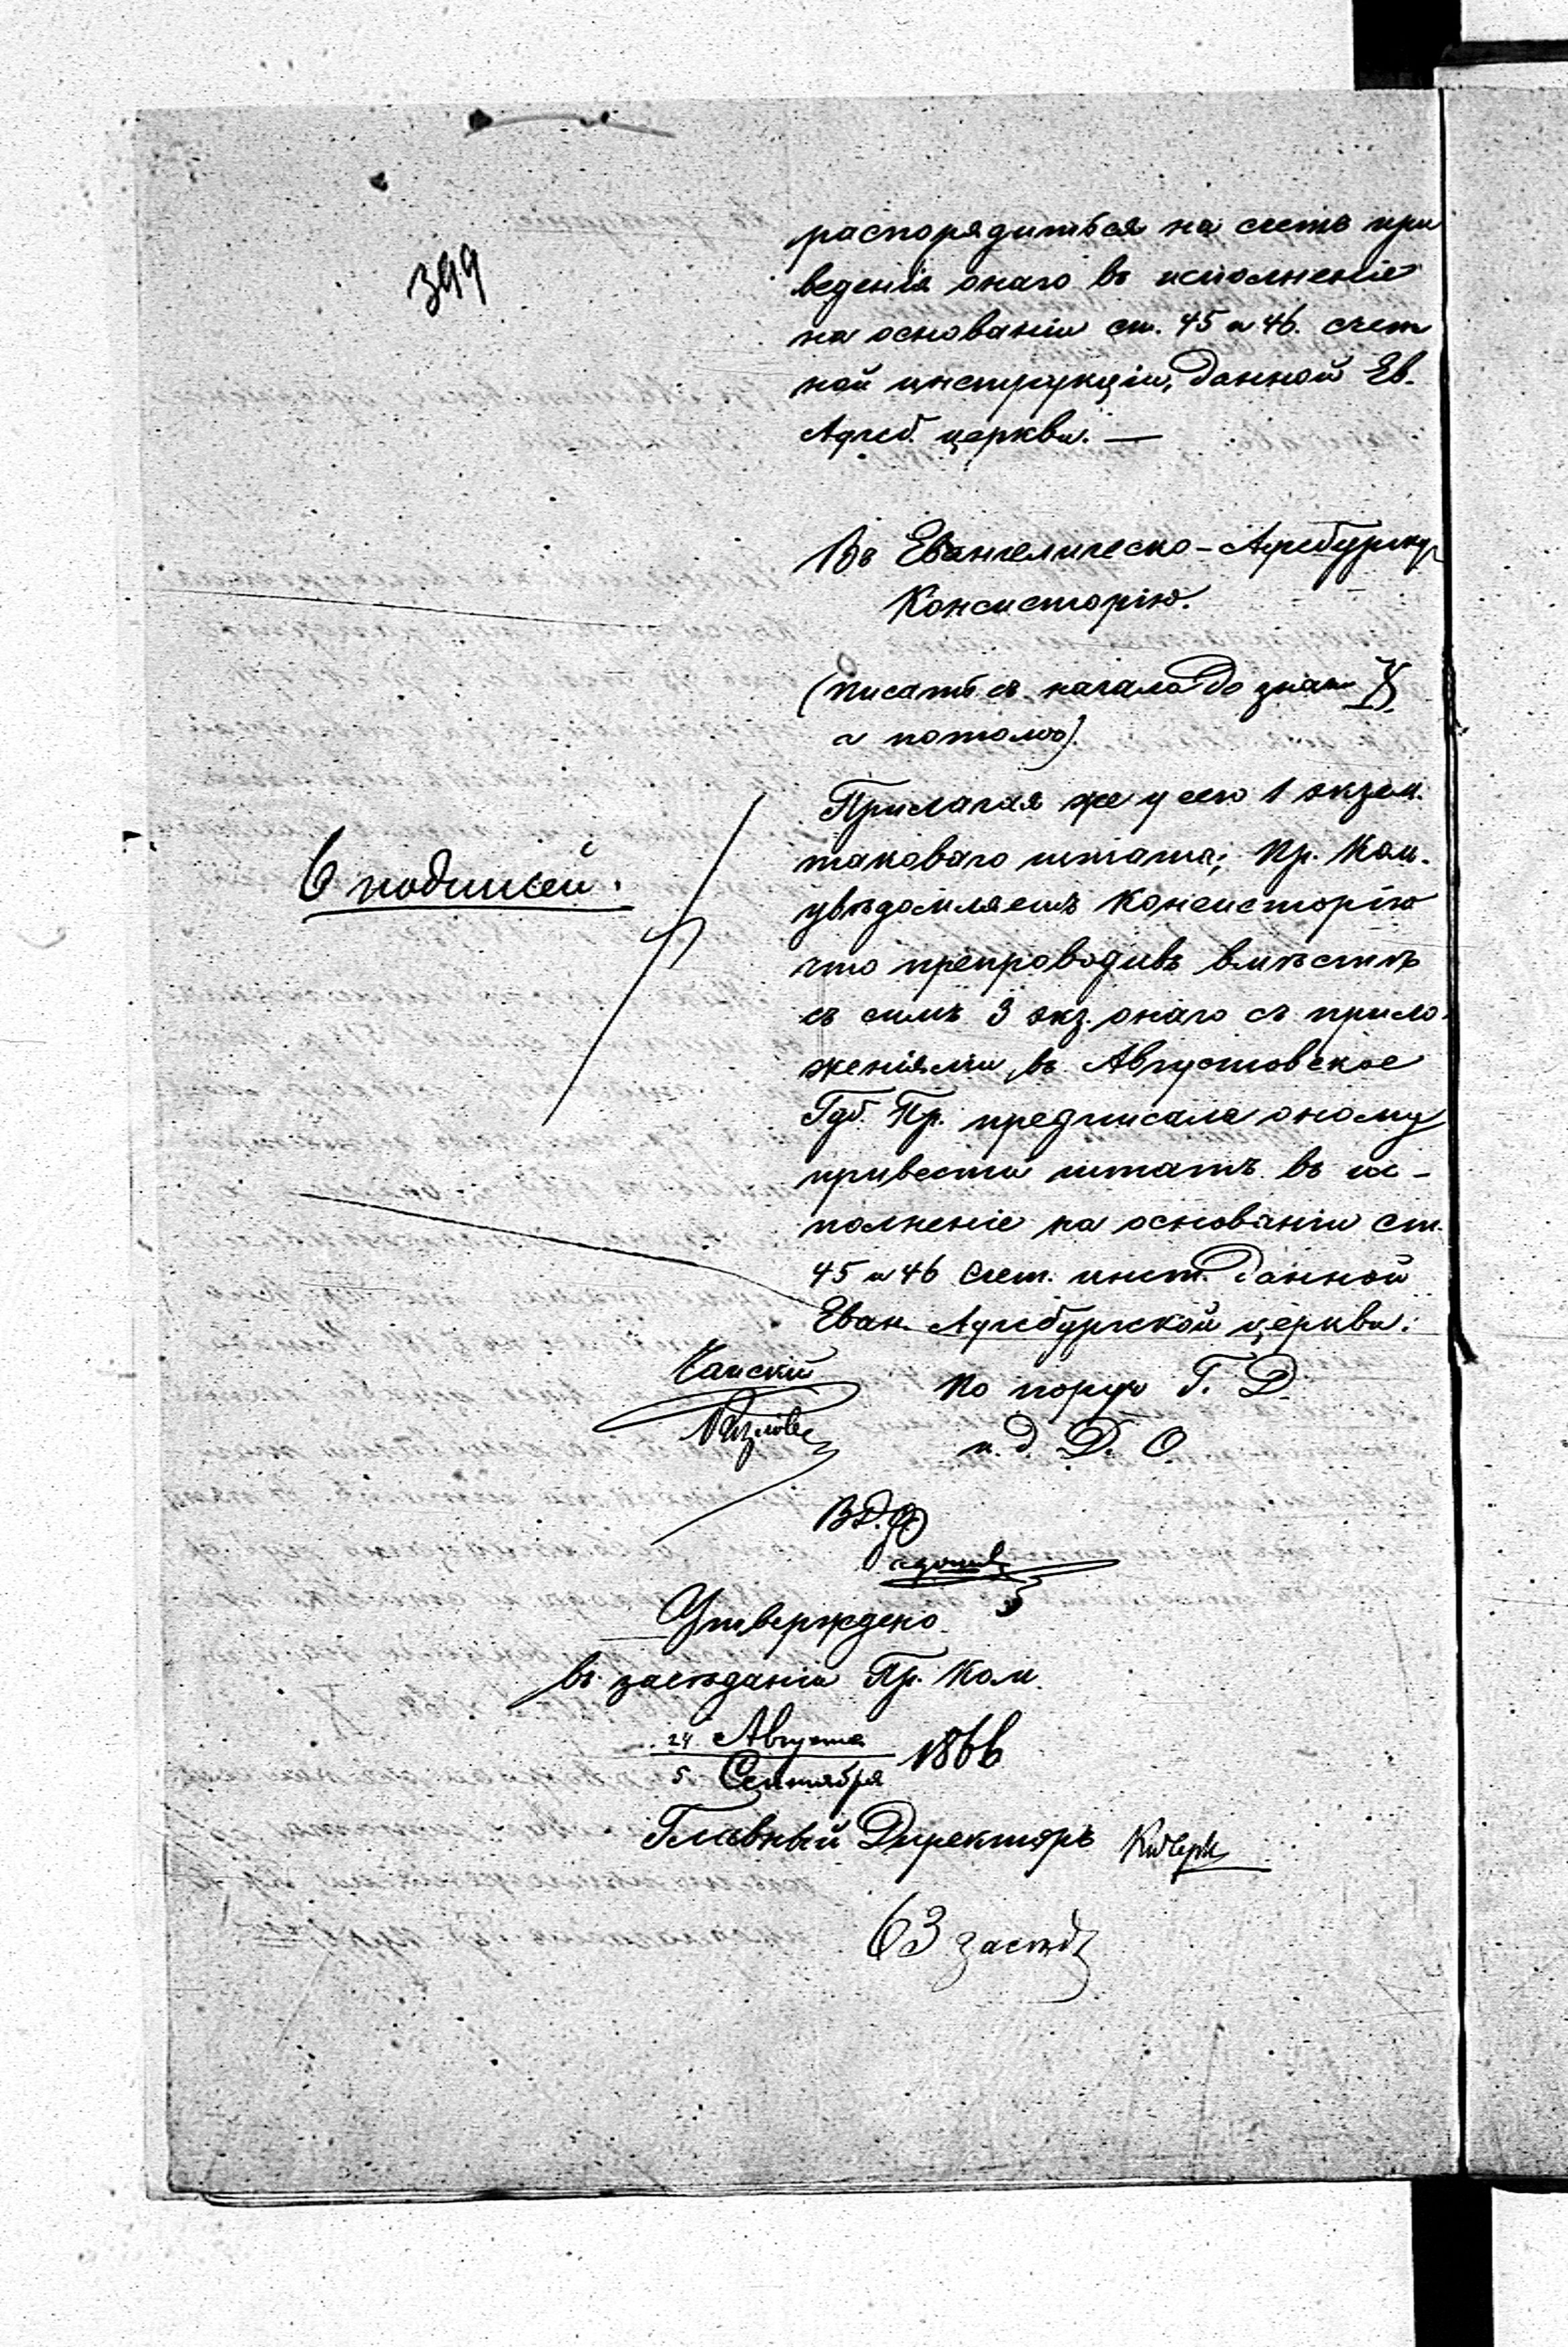 399
распорядиться на счетъ при
веденія онаго въ исполненіе
на основаніи ст. 45 и 46. счет
ной инструкціи, данной Ев.
Аугсб. церкви. —
Въ Евангелическо-Аугсбургку
Консисторію.
(писать съ начала до знака X
а потомъ).
Прилагая же у сего 1 экзем.
таковаго штата; Пр. Ком.
увѣдомляетъ Консисторію
что препроводивъ вмѣстѣ
съ симъ 3 экз. онаго съ прило
женіями, въ Августовское
Губ. Пр. предписала оному
привести штатъ въ ис-
полненіе на основаніи ст.
45 и 46 счет. инст. данной
Еван. Аугсбургской церкви.
6 подписей.
по поруч Г. Д.
и. д. Д. О.
В.Д.
Утверждено
въ засѣданіи Пр. Ком.
24 Августа
5 Сентября 1866
Главный Директоръ
63 засѣд